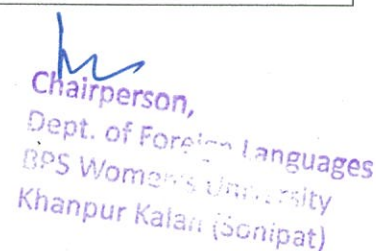 Chairperson,
Dept. of Foreign Languages
BPS Women's University
Khanpur Kalan (Sonipat)